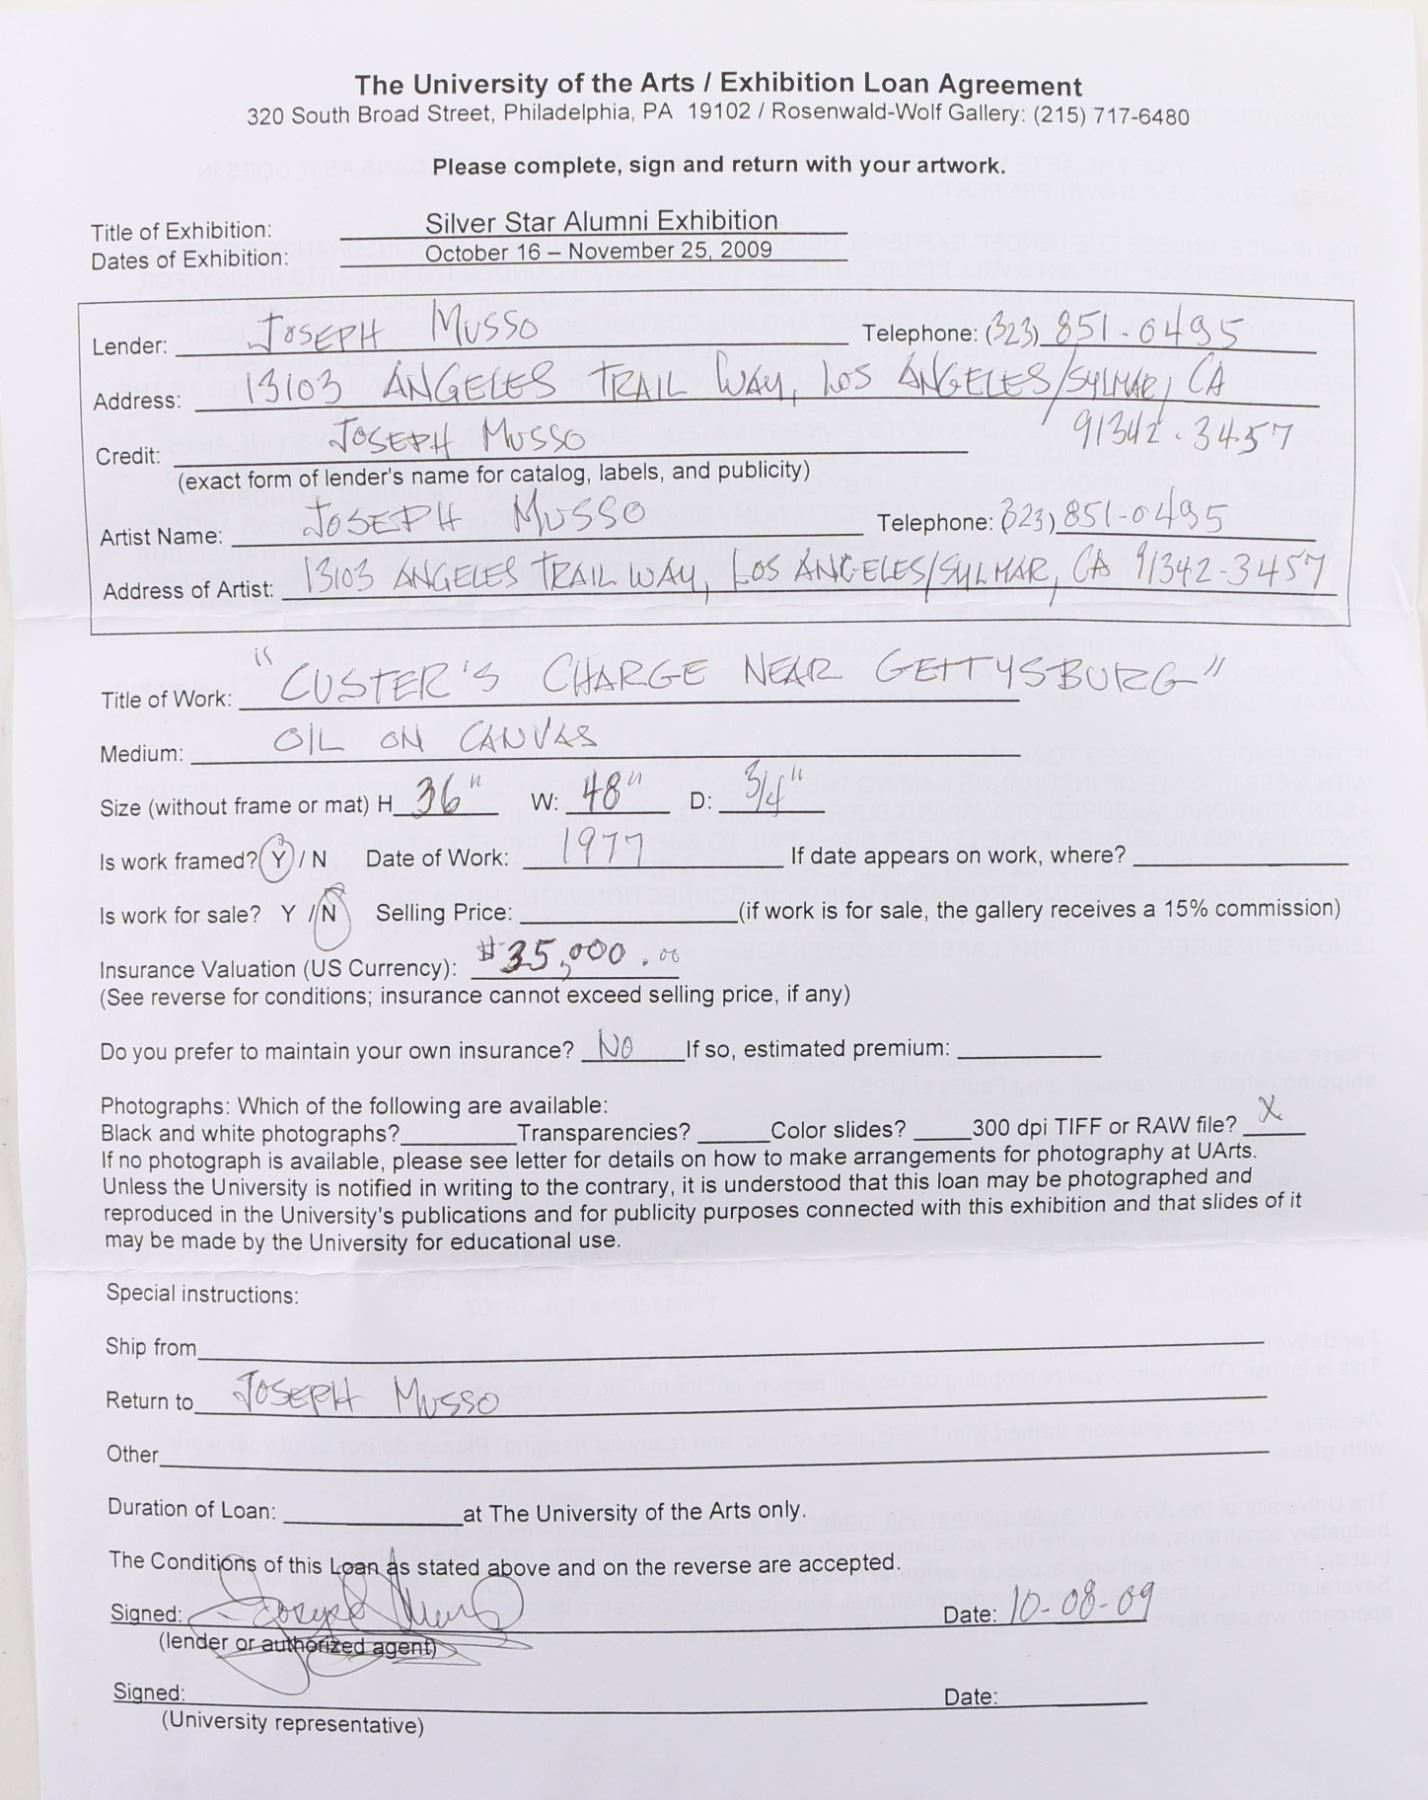 The University of the Arts / Exhibition Loan Agreement
320 South Broad Street, Philadelphia, PA 19102 / Rosenwald-Wolf Gallery: (215) 717-6480
Please complete, sign and return with your artwork.
Title of Exhibition: Silver Star Alumni Exhibition
Dates of Exhibition: October 16 – November 25, 2009
Lender: JOSEPH MUSSO Telephone: (323) 851-0495
Address: 13103 ANGELES TRAIL WAY, LOS ANGELES/SYLMAR, CA
91342-3457
Credit: JOSEPH MUSSO
(exact form of lender's name for catalog, labels, and publicity)
Artist Name: JOSEPH MUSSO Telephone: (323) 851-0495
Address of Artist: 13103 ANGELES TRAIL WAY, LOS ANGELES/SYLMAR, CA 91342-3457
Title of Work: "CUSTER'S CHARGE NEAR GETTYSBURG"
Medium: OIL ON CANVAS
Size (without frame or mat) H 36" W: 48" D: 3/4"
Is work framed? Y / N Date of Work: 1977 If date appears on work, where?
Is work for sale? Y / N Selling Price: (if work is for sale, the gallery receives a 15% commission)
Insurance Valuation (US Currency): $35,000.00
(See reverse for conditions; insurance cannot exceed selling price, if any)
Do you prefer to maintain your own insurance? NO If so, estimated premium:
Photographs: Which of the following are available:
Black and white photographs? Transparencies? Color slides? 300 dpi TIFF or RAW file? X
If no photograph is available, please see letter for details on how to make arrangements for photography at UArts.
Unless the University is notified in writing to the contrary, it is understood that this loan may be photographed and
reproduced in the University's publications and for publicity purposes connected with this exhibition and that slides of it
may be made by the University for educational use.
Special instructions:
Ship from
Return to JOSEPH MUSSO
Other
Duration of Loan: at The University of the Arts only.
The Conditions of this Loan as stated above and on the reverse are accepted.
Signed: Joseph Musso Date: 10-08-09
(lender or authorized agent)
Signed: Date:
(University representative)